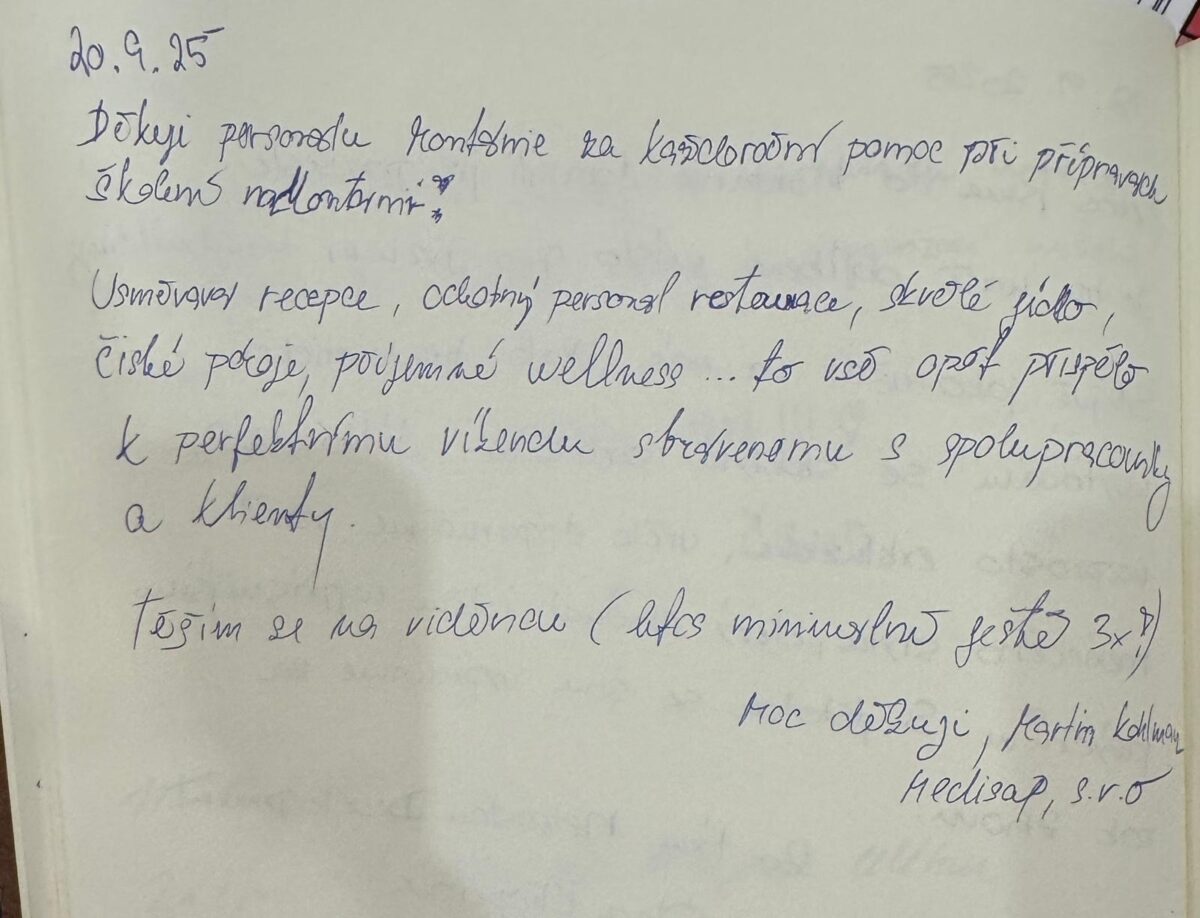 20.9.25
Děkuji personálu Montanie za každoroční pomoc při přípravách
školení
Usměvavá recepce, ochotný personál restaurace, skvělé jídlo,
čisté pokoje, příjemné wellness... to vše opět přispělo
k perfektnímu víkendu strávenému s spolupracovníky
a klienty.
Těším se na viděnou (letos minimálně ještě 3x!)
Moc děkuji, Martin Kohlman
Medisap, s.r.o